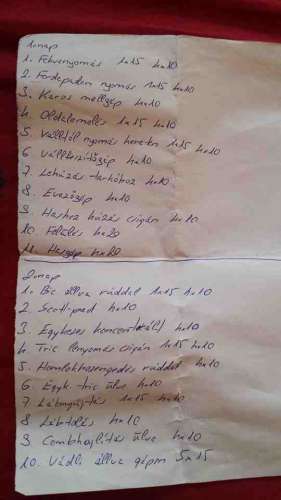 1. nap
1. Fekvenyomás 1x15 4x10
2. Ferdepadon nyomás 1x15 4x10
3. Karos mellgép 4x10
4. Oldalemelés 1x15 4x10
5. Válltól nyomás kereten 1x15 4x10
6. Vállkészítőgép 4x10
7. Lehúzás tarkóhoz 4x10
8. Evezőgép 4x10
9. Hashoz húzás csigán 4x10
10. Felülés 4x20
11. Hasgép 4x20
2. nap
1. Bic állva rúddal 1x15 4x10
2. Scott-pad 4x10
3. Egykezes koncent 4x10
4. Tric lenyomás csigán 1x15 4x10
5. Homlokhozengedés rúddal 4x10
6. Egyk. tric ülve 4x10
7. Lábnyújtás 1x15 4x10
8. Lábtolás 4x10
9. Combhajlítás ülve 4x10
10. Vádli állva gépen 5x15